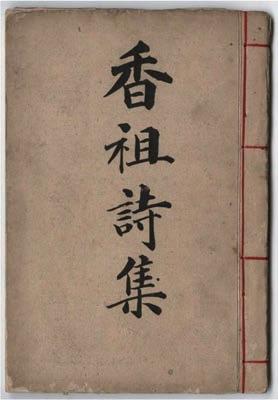 香祖詩集